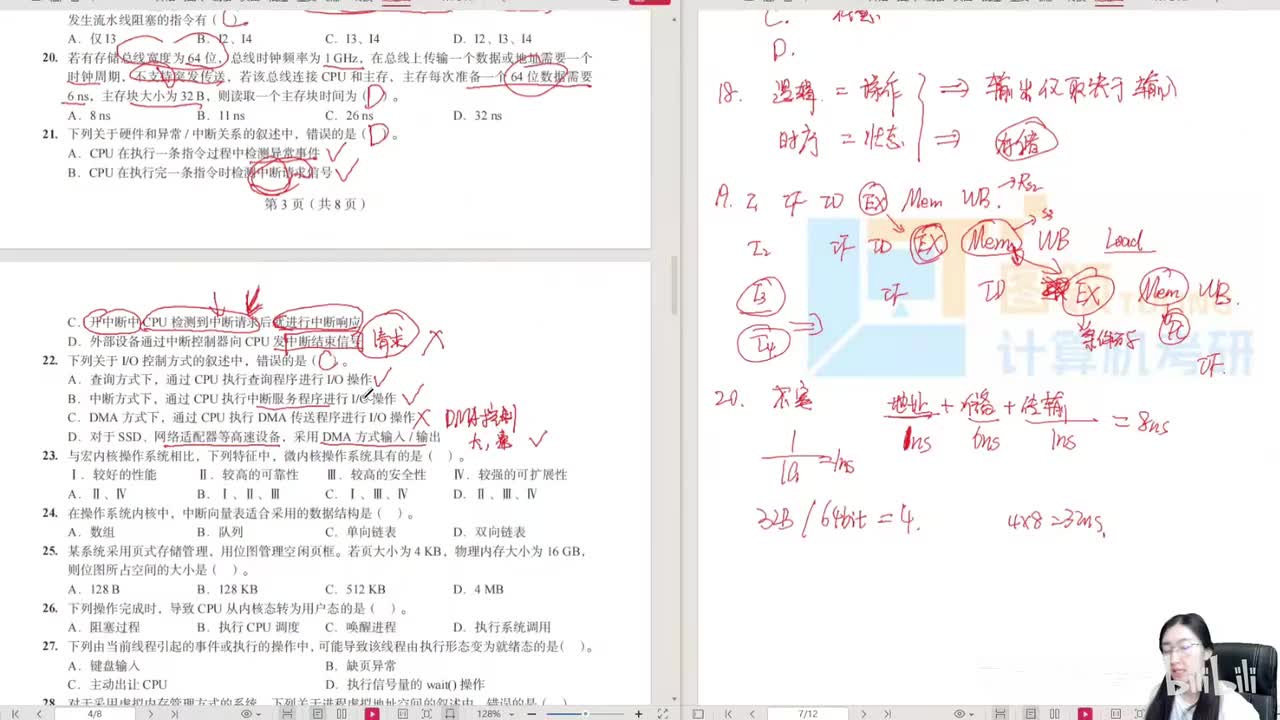 发生流水线阻塞的指令有( C )。
A. 仅 I3 B. I2、I4 C. I3、I4 D. I2、I3、I4
20. 若有存储总线宽度为 64 位，总线时钟频率为 1 GHz，在总线上传输一个数据或地址需要一个
时钟周期，不支持突发传送，若该总线连接 CPU 和主存，主存每次准备一个 64 位数据需要
6 ns，主存块大小为 32 B，则读取一个主存块时间为( D )。
A. 8 ns B. 11 ns C. 26 ns D. 32 ns
21. 下列关于硬件和异常/中断关系的叙述中，错误的是( D )。
A. CPU 在执行一条指令过程中检测异常事件
B. CPU 在执行完一条指令时检测中断请求信号
第 3 页（共 8 页）
C. 开中断中 CPU 检测到中断请求后就进行中断响应
D. 外部设备通过中断控制器向 CPU 发中断结束信号 请求
22. 下列关于 I/O 控制方式的叙述中，错误的是( C )。
A. 查询方式下，通过 CPU 执行查询程序进行 I/O 操作
B. 中断方式下，通过 CPU 执行中断服务程序进行 I/O 操作
C. DMA 方式下，通过 CPU 执行 DMA 传送程序进行 I/O 操作
D. 对于 SSD、网络适配器等高速设备，采用 DMA 方式输入/输出
23. 与宏内核操作系统相比，下列特征中，微内核操作系统具有的是( )。
Ⅰ. 较好的性能 Ⅱ. 较高的可靠性 Ⅲ. 较高的安全性 Ⅳ. 较强的可扩展性
A. Ⅱ、Ⅳ B. Ⅰ、Ⅱ、Ⅲ C. Ⅰ、Ⅲ、Ⅳ D. Ⅱ、Ⅲ、Ⅳ
24. 在操作系统内核中，中断向量表适合采用的数据结构是( )。
A. 数组 B. 队列 C. 单向链表 D. 双向链表
25. 某系统采用页式存储管理，用位图管理空闲页框。若页大小为 4 KB，物理内存大小为 16 GB，
则位图所占空间的大小是( )。
A. 128 B B. 128 KB C. 512 KB D. 4 MB
26. 下列操作完成时，导致 CPU 从内核态转为用户态的是( )。
A. 阻塞过程 B. 执行 CPU 调度 C. 唤醒进程 D. 执行系统调用
27. 下列由当前线程引起的事件或执行的操作中，可能导致该线程由执行形态变为就绪态的是( )。
A. 键盘输入 B. 缺页异常
C. 主动出让 CPU D. 执行信号量的 wait() 操作
28. 对于采用虚拟内存管理方式的系统，下列关于进程虚拟地址空间的叙述中，错误的是( )。
4/8 128%
C.
D.
18. 逻辑 = 操作 ⇒ 输出仅取决于输入
时序 = 状态 ⇒ 存储
A. I1 IF ID EX Mem WB.
I2 IF ID EX Mem WB Load
I3 IF ID EX Mem WB.
I4 IF
图
计算机考研
20. 地址 + 准备 + 传输 = 8ns
1ns 6ns 1ns
1/1G = 1ns
32B / 64bit = 4. 4×8=32ns.
7/12
bilibili